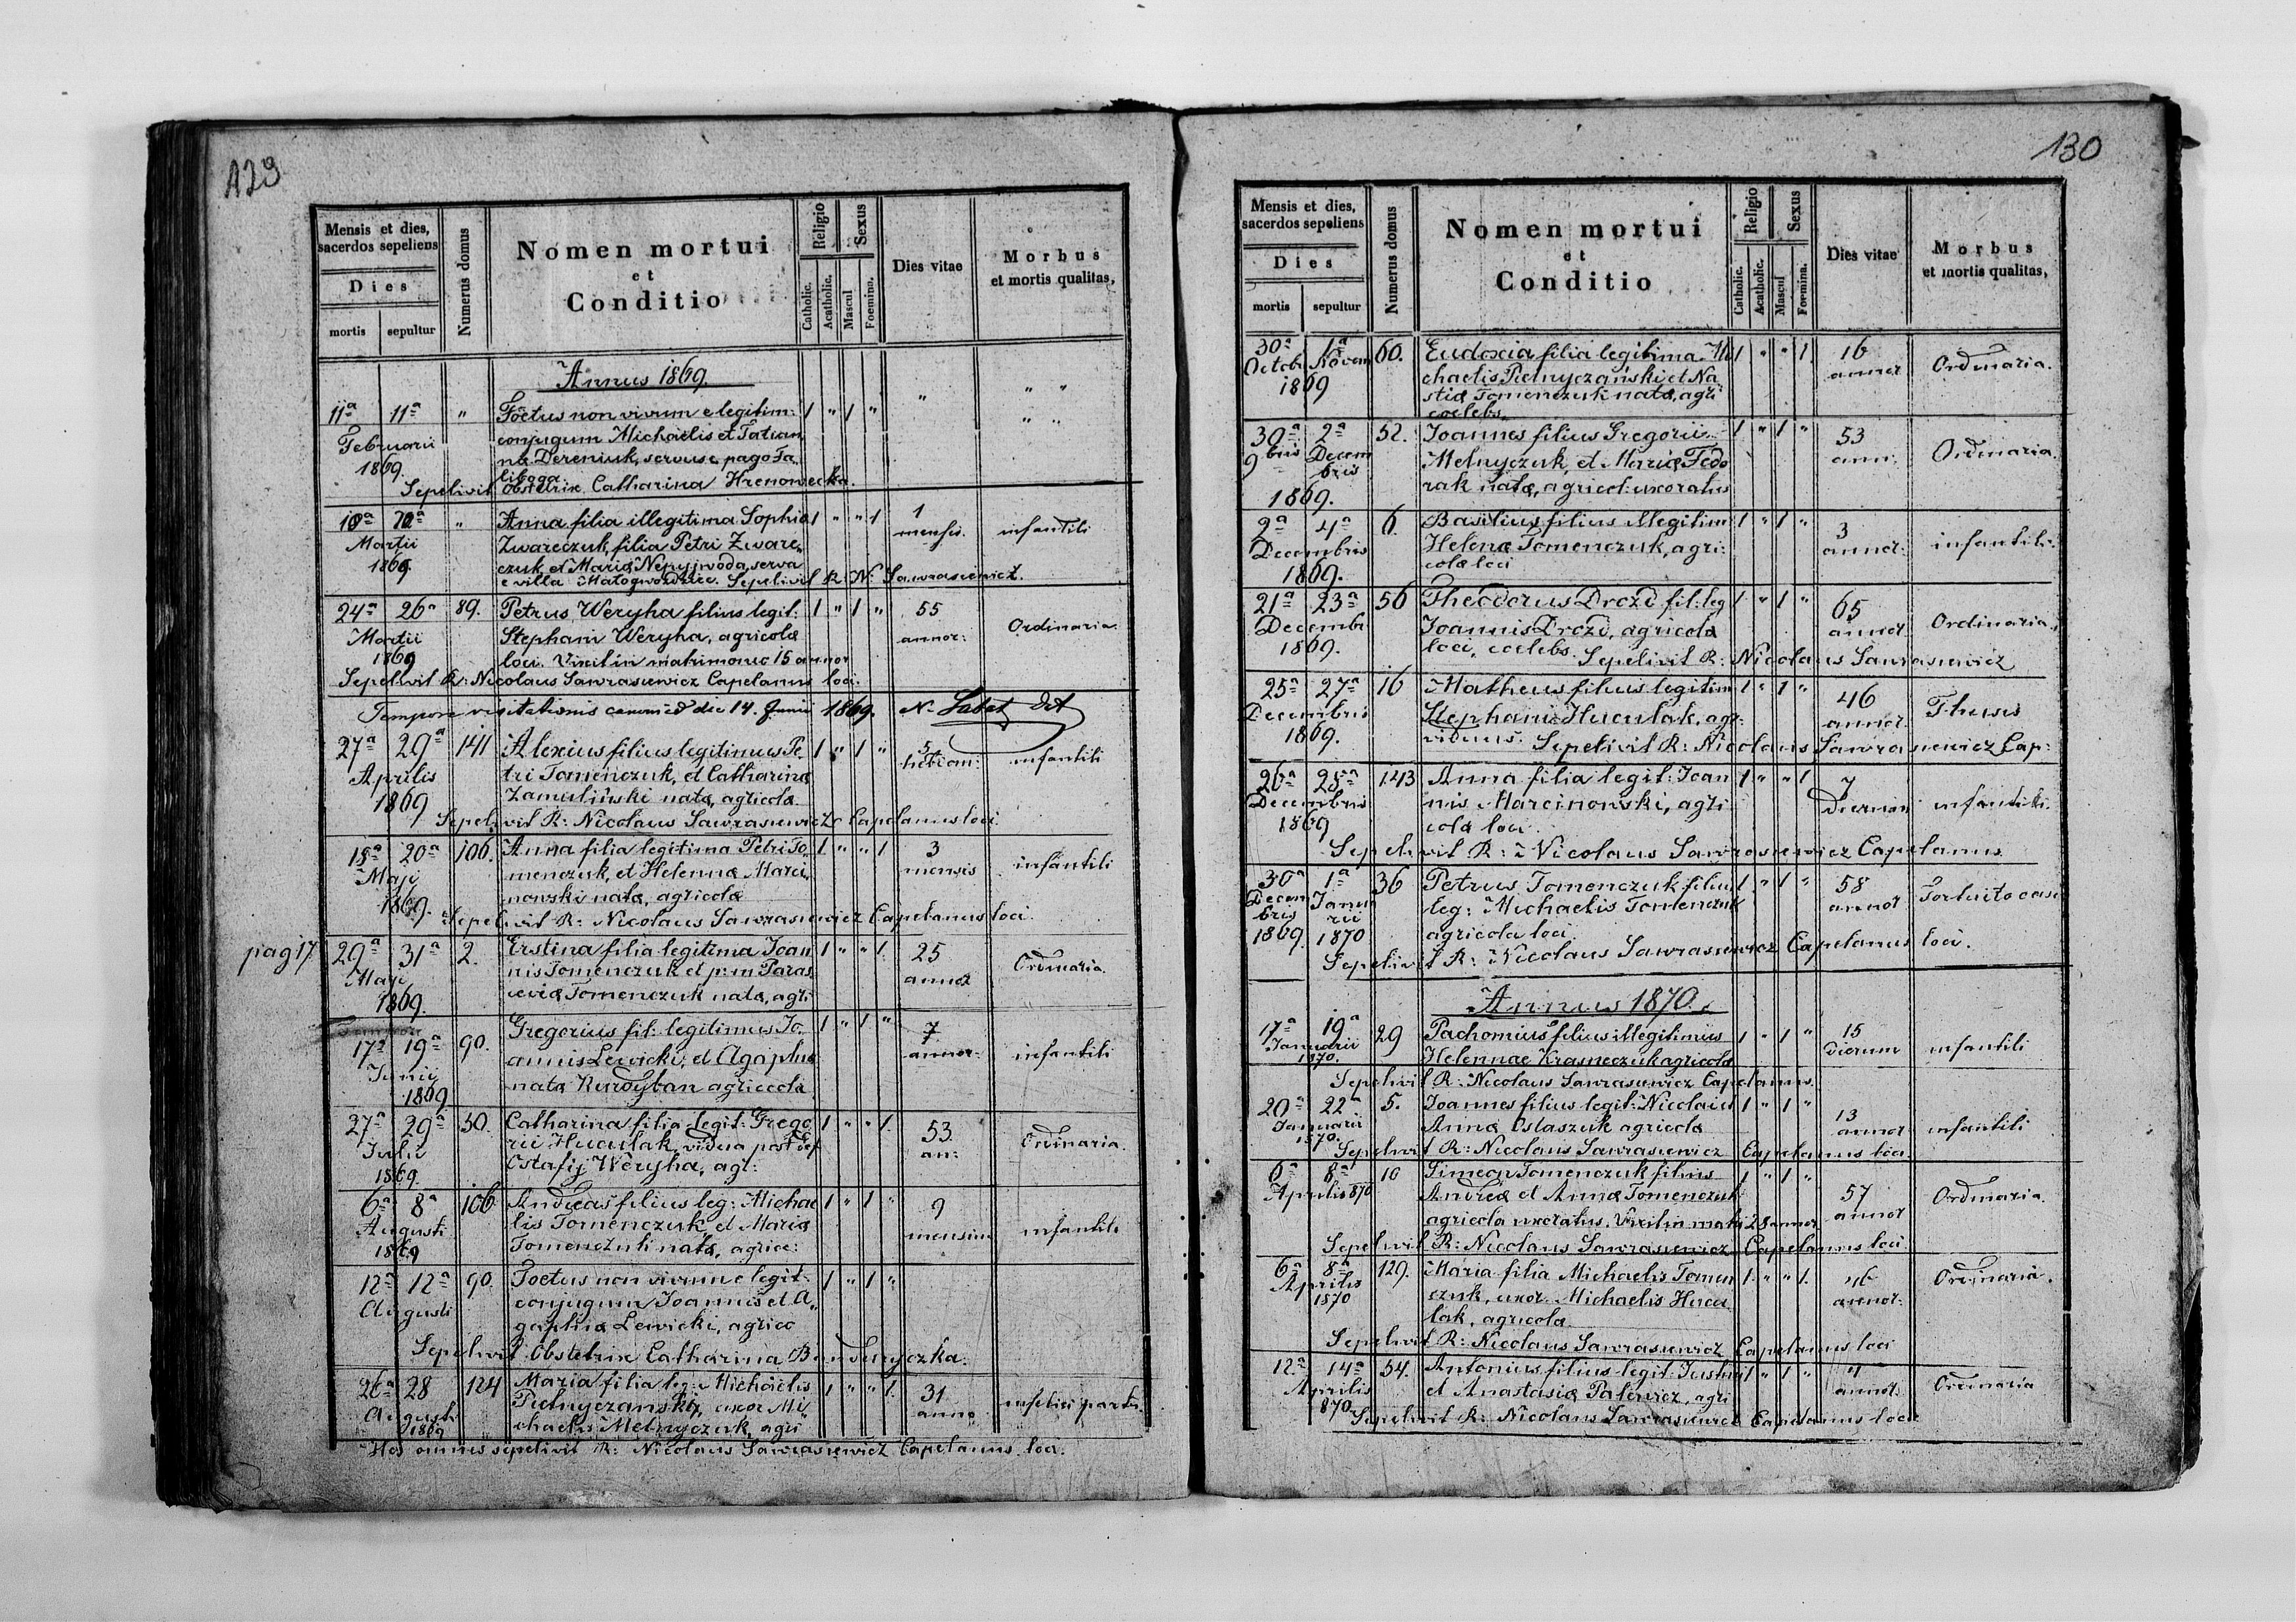 129
Mensis et dies, sacerdos sepeliens
Dies
mortis sepultur
Numerus domus
Nomen mortui
et
Conditio
Religio
Catholic. Acatholic.
Sexus
Mascul Foemina.
Dies vitae
Morbus
et mortis qualitas,
Annus 1869.
11a 11a " Foetus non vivum e legitim: 1 " 1 " " " "
Februarii conjugum Michaelis et Tatian " "
1869. nae Dereniuk, servus e pago Ta
Sepelivit Obstetrix Catharina Hrenowecka.
" Anna filia illegitima Sophiae 1 " " 1 1 mensis. infantili
Martii Zwareczuk, filia Petri Zware
1869 czuk et Mariae Nepyjwoda, serva
e villa Małogwozdziec. Sepelivit R: N: Sawrasiewicz.
24a 26a 89. Petrus Weryha filius legit: 1 " 1 " 55 annor: Ordinaria.
Martii Stephani Weryha, agricolae
1869 loci. Vixit in matrimonio 15 annor
Sepelivit R: Nicolaus Sawrasiewicz Capelanus loci.
Tempore visitationis die 14. Junii 1869.
27a 29a 141 Alexius filius legitimus Pe 1 " 1 " infantili
Aprilis tri Tomenczuk, et Catharinae
1869 Zamuliński natae, agricola.
Sepelivit R: Nicolaus Sawrasiewicz Capelanus loci.
18a 20a 106. Anna filia legitima Petri To 1 " " 1 3 mensis infantili
Maji menczuk, et Helennae Marci
1869. nowski natae, agricolae
Sepelivit R: Nicolaus Sawrasiewicz Capelanus loci.
pag 17
29a 31a 2. Erstina filia legitima Joan 1 " " 1. 25 annor Ordinaria.
Maji nis Tomenczuk et p: m Paras
1869. ceviae Tomenczuk natae, agri
17a 19a 90. Gregorius fil: legitimus Jo 1 " 1 " 7 annor: infantili
Junii annis Lewicki, et Agaphiae
1869 natae Kurdyban agricolae
27a 29a 50. Catharina filia legit: Grego 1 " " 1. 53. an: Ordinaria
Julii rii Huculak, vidua post def
1869. Ostafij Weryha, agr:
6a 8a 106 Andreas filius leg: Michae 1 " 1 " 9 mensium infantili
Augusti lis Tomenczuk, et Mariae
1869 Tomenczuk natae, agric:
12a 12a 90. Foetus non vivum e legit 1 " 1 "
Augusti conjugum Joannis et A
gaphiae Lewicki, agrico
Sepelivit Obstetrix Catharina
26a 28 124 Maria filia leg: Michaelis 1 " " 1. 31 anno infelici partu
Augusti Pielnyczanski, uxor Mi
1869 chaelis Melnyczuk, agri
Hos omnes sepelivit R: Nicolaus Sawrasiewicz Capelanus loci.
130
Mensis et dies, sacerdos sepeliens
Dies
mortis sepultur
Numerus domus
Nomen mortui
et
Conditio
Religio
Catholic. Acatholic.
Sexus
Mascul Foemina.
Dies vitae
Morbus
et mortis qualitas,
30a 1a 60. Eudoxia filia legitima Mi 1 " " 1. 16 annor Ordinaria.
Octobr Novem chaelis Pielnyczański et Na
1869 stiae Tomenczuk natae, agri
coelebs.
30a 2a 52. Joannes filius Gregorii 1 " 1 " 53 ann: Ordinaria.
9bris Decem Melnyczuk, et Mariae Fedo
bris rak natae, agricol: uxoratus
1869.
2a 4a 6. Basilius filius illegitim 1 " 1 " 3 annor: infantili
Decembris Helenae Tomenczuk, agri:
1869. colae loci
21a 23a 56 Theodorus Drozd fil: leg 1 " 1 " 65 annor Ordinaria.
Decembr Joannis Drozd, agricola
1869. loci, coelebs. Sepelivit R: Nicolaus Sawrasiewicz
25a 27a 16 Matheus filius legitim 1 " 1 " 46 annor Thusis
Decembris Stephani Huculak, agr:
1869. viduus. Sepelivit R: Nicolaus Sawrasiewicz Cap:
26a 28a 143 Anna filia legit: Joan 1 " " 1 7 Dierum infantili.
Decembris nis Marcinowski, agri
1869 colae loci.
Sepelivit R: Nicolaus Sawrasiewicz Capelanus
30a 1a 36 Petrus Tomenczuk filius 1 " 1 " 58 annor Fortuito casu
Decem Janu leg: Michaelis Tomenczuk
bris rii agricola loci.
1869. 1870
Sepelivit R: Nicolaus Sawrasiewicz Capelanus loci.
Annus 1870.
17a 19a 29 Pachomius filius illegitimus 1 " 1 " 15 dierum infantili
Januarii Helennae Krasneczuk agricolae
1870.
Sepelivit R: Nicolaus Sawrasiewicz Capelanus.
20a 22a 5. Joannes filius legit: Nicolai et 1 " 1 " 13 annor infantili
Januarii Annae Ostaszuk agricolae
1870.
Sepelivit R: Nicolaus Sawrasiewicz Capelanus loci.
6a 8a 10 Simeon Tomenczuk filius 1 " 1 " 57 annor Ordinaria.
Aprilis 870 Andreae et Annae Tomenczuk
agricola uxoratus. Vixit in matri 28 annor
Sepelivit R: Nicolaus Sawrasiewicz Capelanus loci.
6a 8a 129. Maria filia Michaelis Tomen 1. " " 1. 46 annor: Ordinaria.
Aprilis czuk, uxor Michaelis Hucu
1870 lak, agricola.
Sepelivit R: Nicolaus Sawrasiewicz Capelanus loci
12a 14a 54. Antonius filius legit: Justini 1 " 1 " annor: Ordinaria
Aprilis et Anastasiae Palewicz, agri
870
Sepelivit R: Nicolaus Sawrasiewicz Capelanus loci